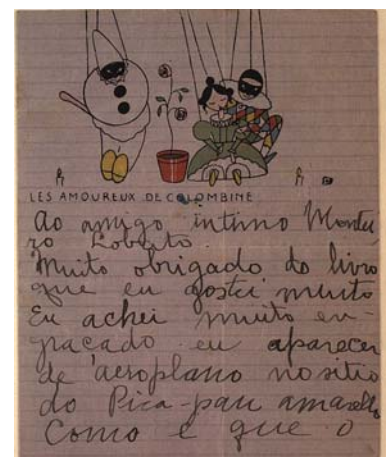 LES AMOUREUX DE COLOMBINE
Ao amigo intimo Montei
ro Lobato.
Muito obrigado do livro
que eu gostei muito
Eu achei muito en-
graçado eu aparecer
de aeroplano no sitio
do Pica-pau amarello
Como e que o